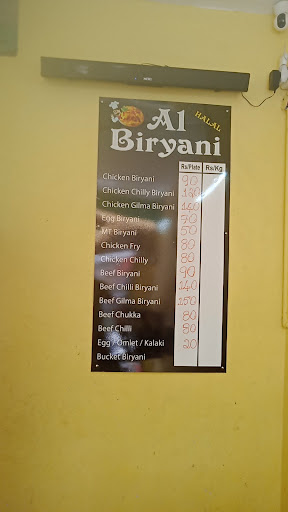 HALAL
Al
Biryani
Rs/Plate Rs/Kg
Chicken Biryani 90
Chicken Chilly Biryani 130
Chicken Gilma Biryani 140
Egg Biryani 70
MT Biryani 50
Chicken Fry 80
Chicken Chilly 80
Beef Biryani 90
Beef Chilli Biryani 140
Beef Gilma Biryani 150
Beef Chukka 80
Beef Chilli 80
Egg / Omlet / Kalaki 20
Bucket Biryani